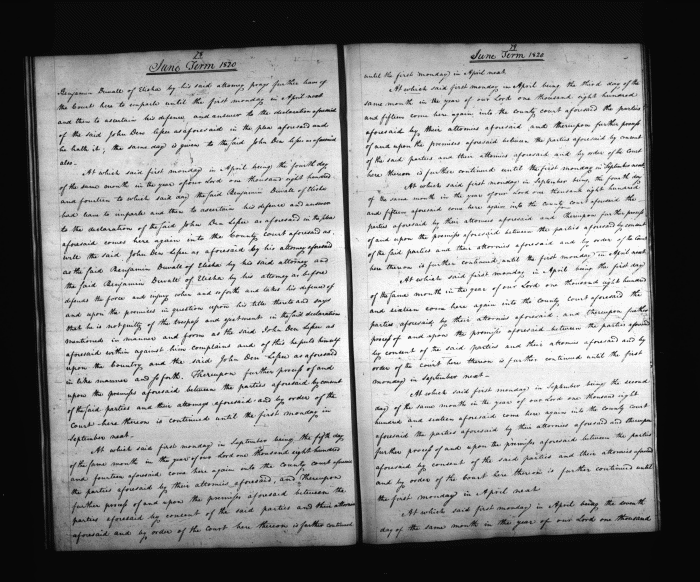 78
June Term 1820
Benjamin Duvall of Elisha by his said attorney prays further leave of
the Court here to imparle until the first monday in April next
and then to ascertain his defence and answer to the declaration aforesaid
of the said John Den Lessee as aforesaid in the plea aforesaid and
he hath it; the same day is given to the said John Den Lessee as aforesaid
also.
At which said first monday in April being the fourth day
of the same month in the year of our Lord one thousand eight hundred
and fourteen to which said day the said Benjamin Duvall of Elisha
had leave to imparle and then to ascertain his defence and answer
to the declaration of the said John Den Lessee as aforesaid in the plea
aforesaid comes here again into the County court aforesaid as
well the said John Den Lessee as aforesaid by his attorney aforesaid
as the said Benjamin Duvall of Elisha by his said attorney and
the said Benjamin Duvall of Elisha by his attorney as before
defends the force and injury when and so forth and takes his defence of
and upon the premises in question upon his title thereto and says
that he is not guilty of the trespass and ejectment in the said declaration
mentioned in manner and form as the said John Den Lessee as
aforesaid within against him complains and of this he puts himself
upon the Country and the said John Den Lessee as aforesaid
in like manner and so forth. Thereupon further process of and
upon the premises aforesaid between the parties aforesaid by consent
of the said parties and their attornies aforesaid and by order of the
Court here thereon is continued until the first monday in
September next.
At which said first monday in September being the fifth day
of the same month in the year of our Lord one thousand eight hundred
and fourteen aforesaid come here again into the county court aforesaid
the parties aforesaid by their attornies aforesaid, and Thereupon
further process of and upon the premises aforesaid between the
parties aforesaid by consent of the said parties and their attornies
aforesaid and by order of the court here thereon is further continued
79
June Term 1820
until the first monday in April next
At which said first monday in April being the third day of the
same month in the year of our Lord one thousand eight hundred
and fifteen come here again into the county court aforesaid the parties
aforesaid by their attornies aforesaid and thereupon further process
of and upon the premises aforesaid between the parties aforesaid by consent
of the said parties and their attornies aforesaid and by order of the Court
here thereon is further continued until the first monday in September next
At which said first monday in September being the fourth day
of the same month in the year of our Lord one thousand eight hundred
and fifteen aforesaid come here again into the county court aforesaid the
parties aforesaid by their attornies aforesaid and thereupon further process
of and upon the premises aforesaid between the parties aforesaid by consent
of the said parties and their attornies aforesaid and by order of the Court
here thereon is further continued until the first monday in April next
At which said first monday in April being the first day
of the same month in the year of our Lord one thousand eight hundred
and sixteen come here again into the county court aforesaid the
parties aforesaid by their attornies aforesaid. and thereupon further
process of and upon the premises aforesaid between the parties aforesaid
by consent of the said parties and their attornies aforesaid and by
order of the court here thereon is further continued until the first
monday in September next
At which said first monday in September being the second
day of the same month in the year of our Lord one thousand eight
hundred and sixteen aforesaid come here again into the county court
aforesaid the parties aforesaid by their attornies aforesaid and thereupon
further process of and upon the premises aforesaid between the parties
aforesaid by consent of the said parties and their attornies aforesaid
and by order of the Court here thereon is further continued until
the first monday in April next
At which said first monday in April being the seventh
day of the same month in the year of our Lord one thousand